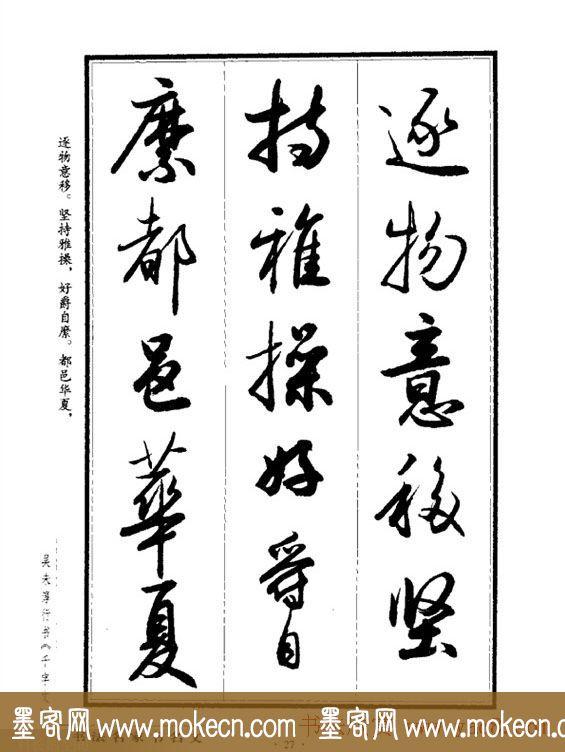 逐物意移坚
持雅操好爵自
縻都邑華夏
逐物意移。坚持雅操，好爵自縻。都邑华夏，
墨客网 www.mokecn.com
墨客网 www.mokecn.com
墨客网
27